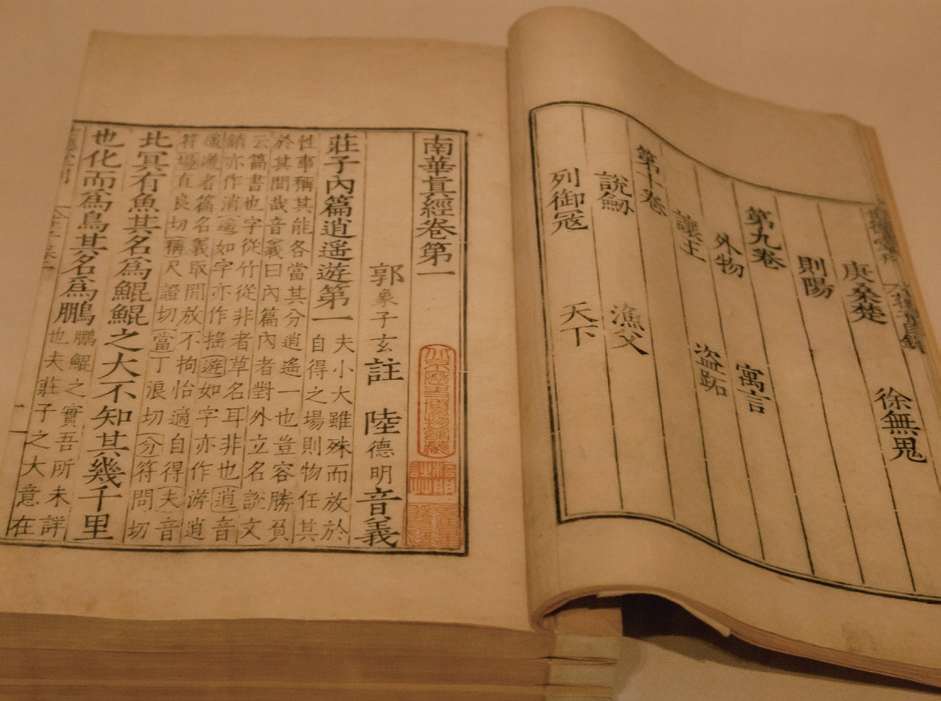 庚桑楚 徐無鬼
則陽
第九卷
外物 寓言
讓王 盜跖
第十卷
說劔 漁父
列御寇 天下
南華真經卷第一
郭象子玄註 陸德明音義
莊子內篇逍遙遊第一 夫小大雖殊而放於
自得之場則物任其
性事稱其能各當其分逍遙一也豈容勝負
於其間哉音義曰內篇內者對外立名說文
云篇書也字從竹從非者草名耳非也逍音
銷亦作消遙如字亦作搖遊如字亦作游逍
遙遊者篇名義取閒放不拘怡適自得夫音
符場直良切稱尺證切當丁浪切分符問切
北冥有魚其名爲鯤鯤之大不知其幾千里
也化而爲鳥其名爲鵬 鵬鯤之實吾所未詳
也夫莊子之大意在